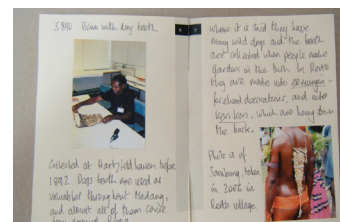 5890 Item with dog teeth
Collected at Hatzfeldhaven before
1892. Dogs teeth are used as
valuables throughout Madang,
and almost all of them come
from around
where it is said they have
many wild dogs and the teeth
are collected when people make
gardens in the bush. In Reite
they are made into
forehead decorations, and into
kori kori, which are hung down
the back.
Photo is of
taken
in 2006 in
Reite village.